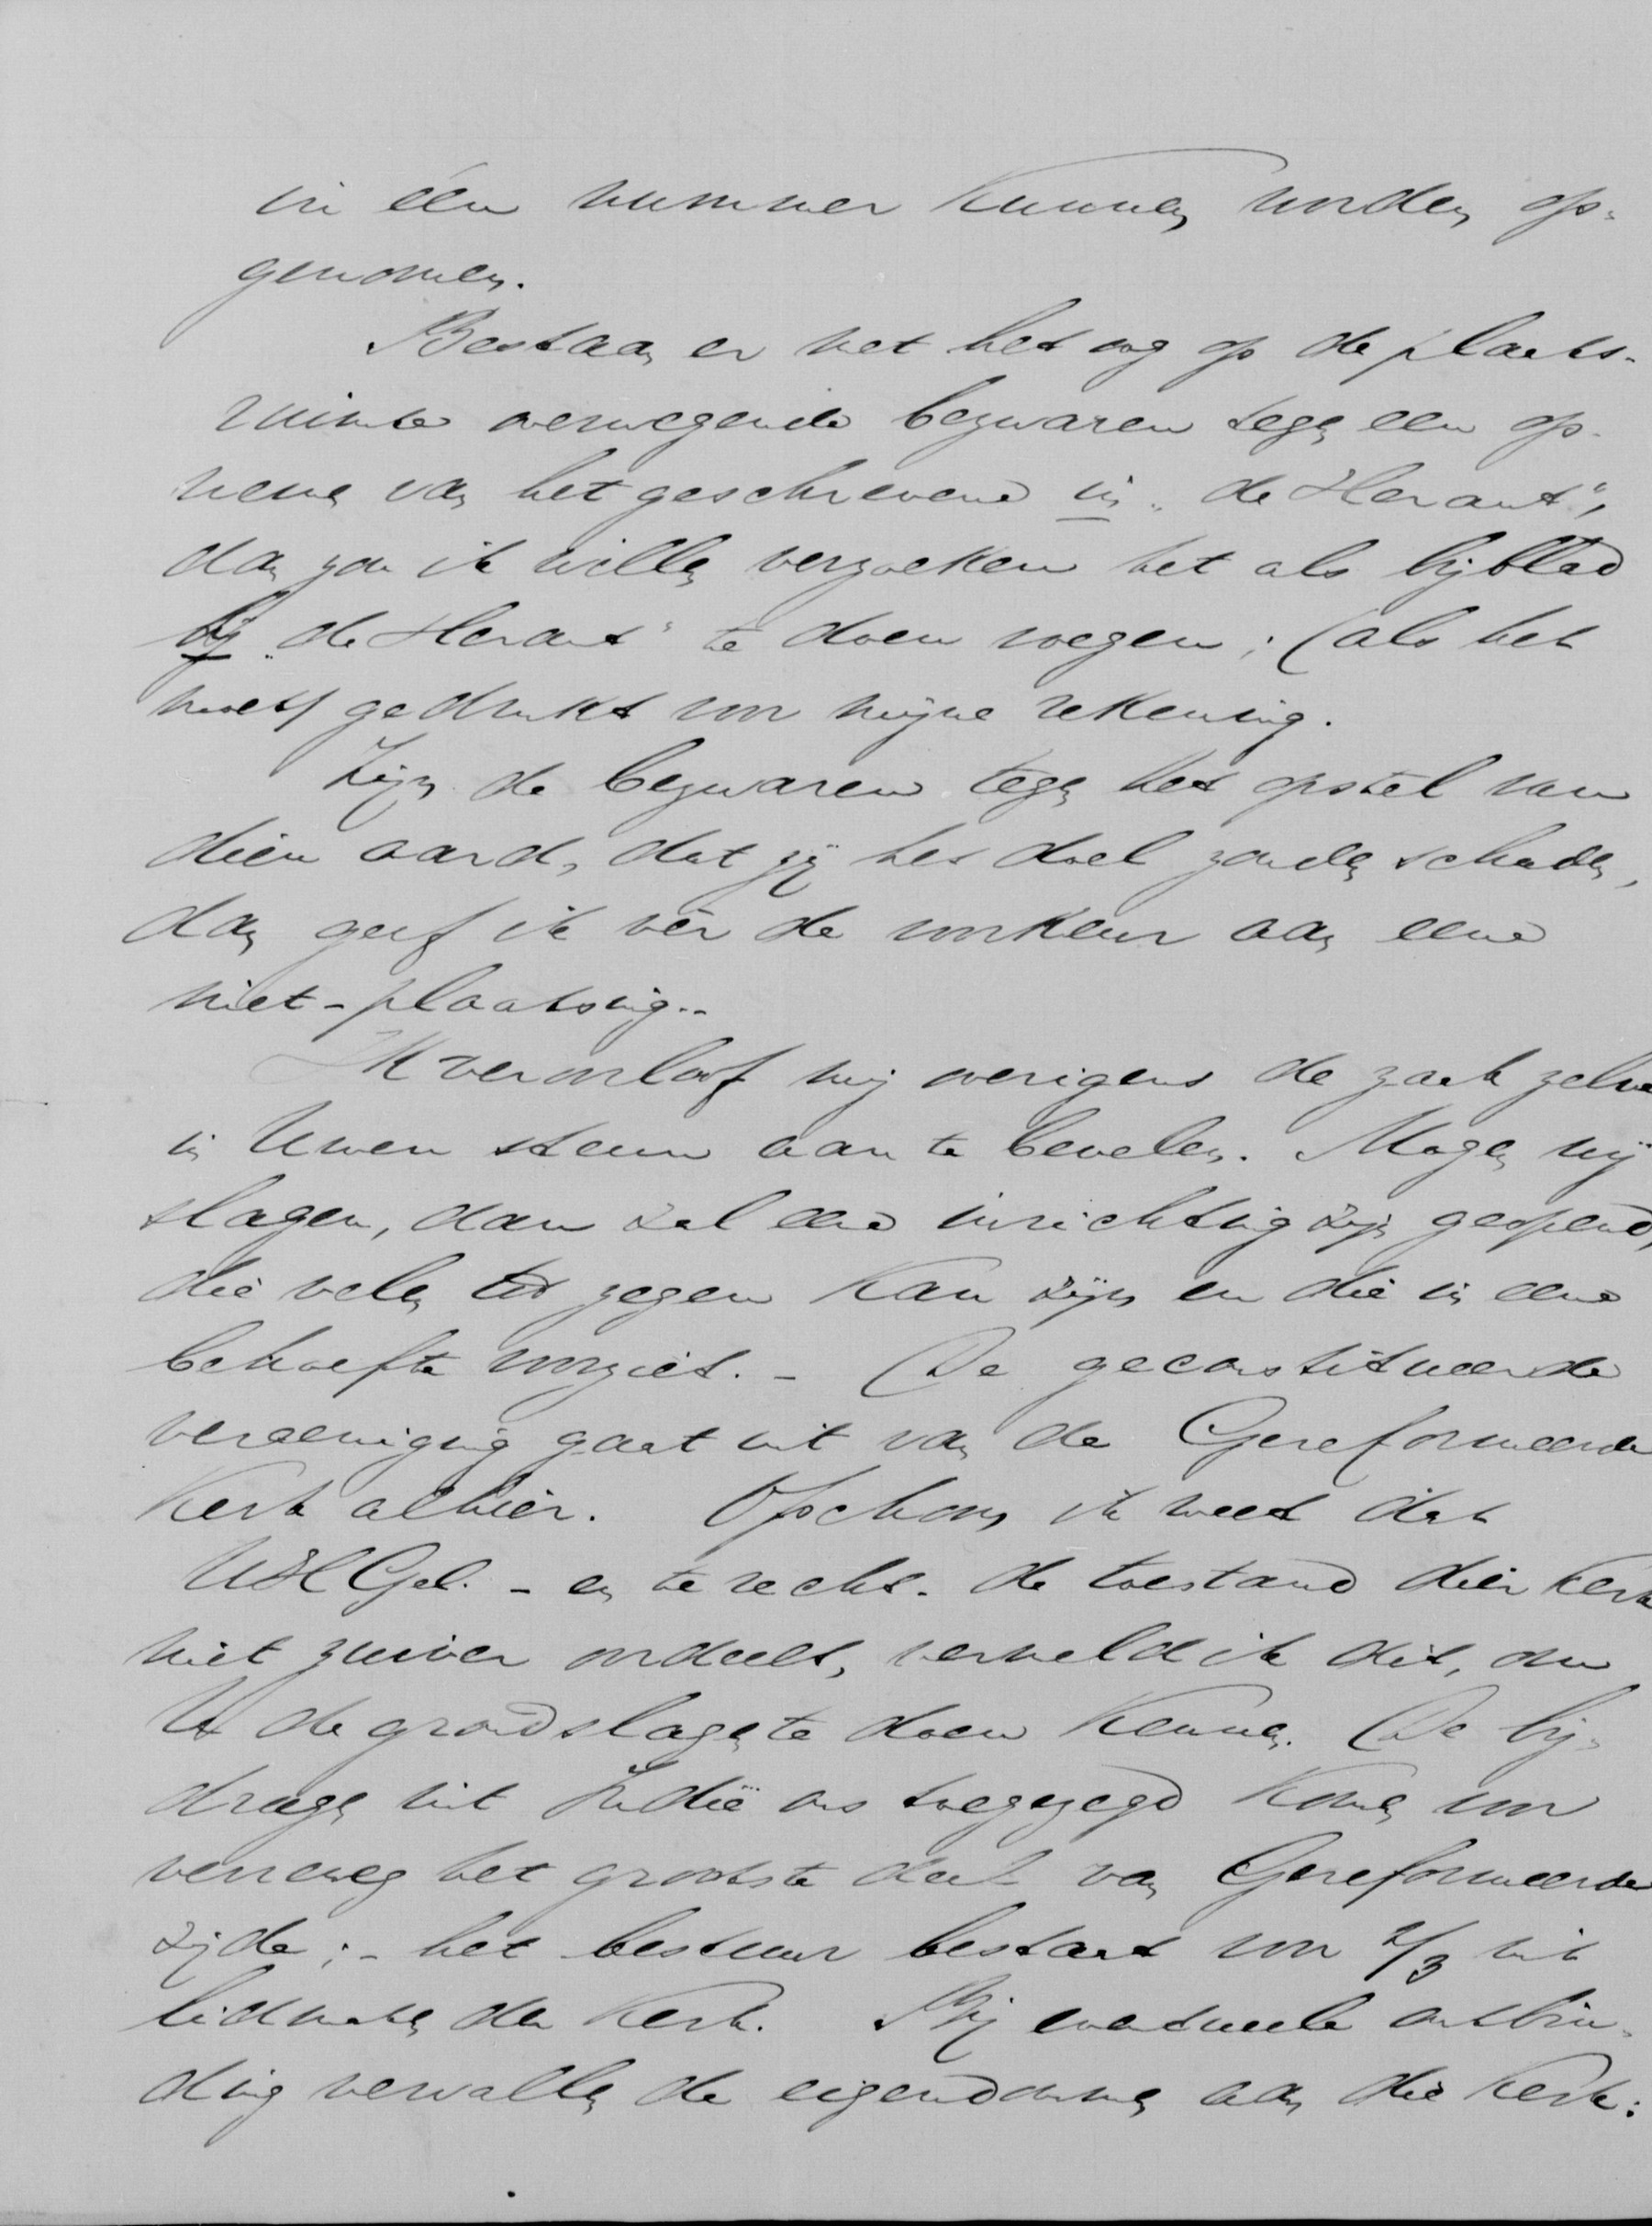 in één nummer kunnen worden op-
genomen.
Bestaan er met het oog op de plaats-
ruimte overwegende bezwaren tegen een op-
neme van het geschrevene in "de Heraut",
dan zou ik willen verzoeken het als bijblad
bij "de Heraut" te doen voegen; (als het
moet) gedrukt voor mijne rekening.
Zijn de bezwaren tegen het opstel van
dien aard, dat zij het doel zouden schaden,
dan geef ik vér de voorkeur aan eene
niet-plaatsing.-
Ik veroorloof mij overigens de zaak zelve
in Uwen steun aan te bevelen. Mogen wij
slagen, dan zal eene inrichting zijn geopend,
die velen tot zegen kan zijn en die in eene
behoefte voorziet. - De geconstitueerde
vereeniging gaat uit van de Gereformeerde
Kerk alhier. Ofschoon ik weet dat
UHGel. - en te recht - de toestand dier Kerk
niet zuiver oordeelt, vermeld ik dit, om
U de grondslagen te doen kennen. De bij-
dragen uit Indië ons toegezegd komen voor
verreweg het grootste deel van Gereformeerde
zijde; - het bestuur bestaat voor 2/3 uit
lidmaten der Kerk. Bij eventueele ontbin-
ding vervallen de eigendommen aan die Kerk: